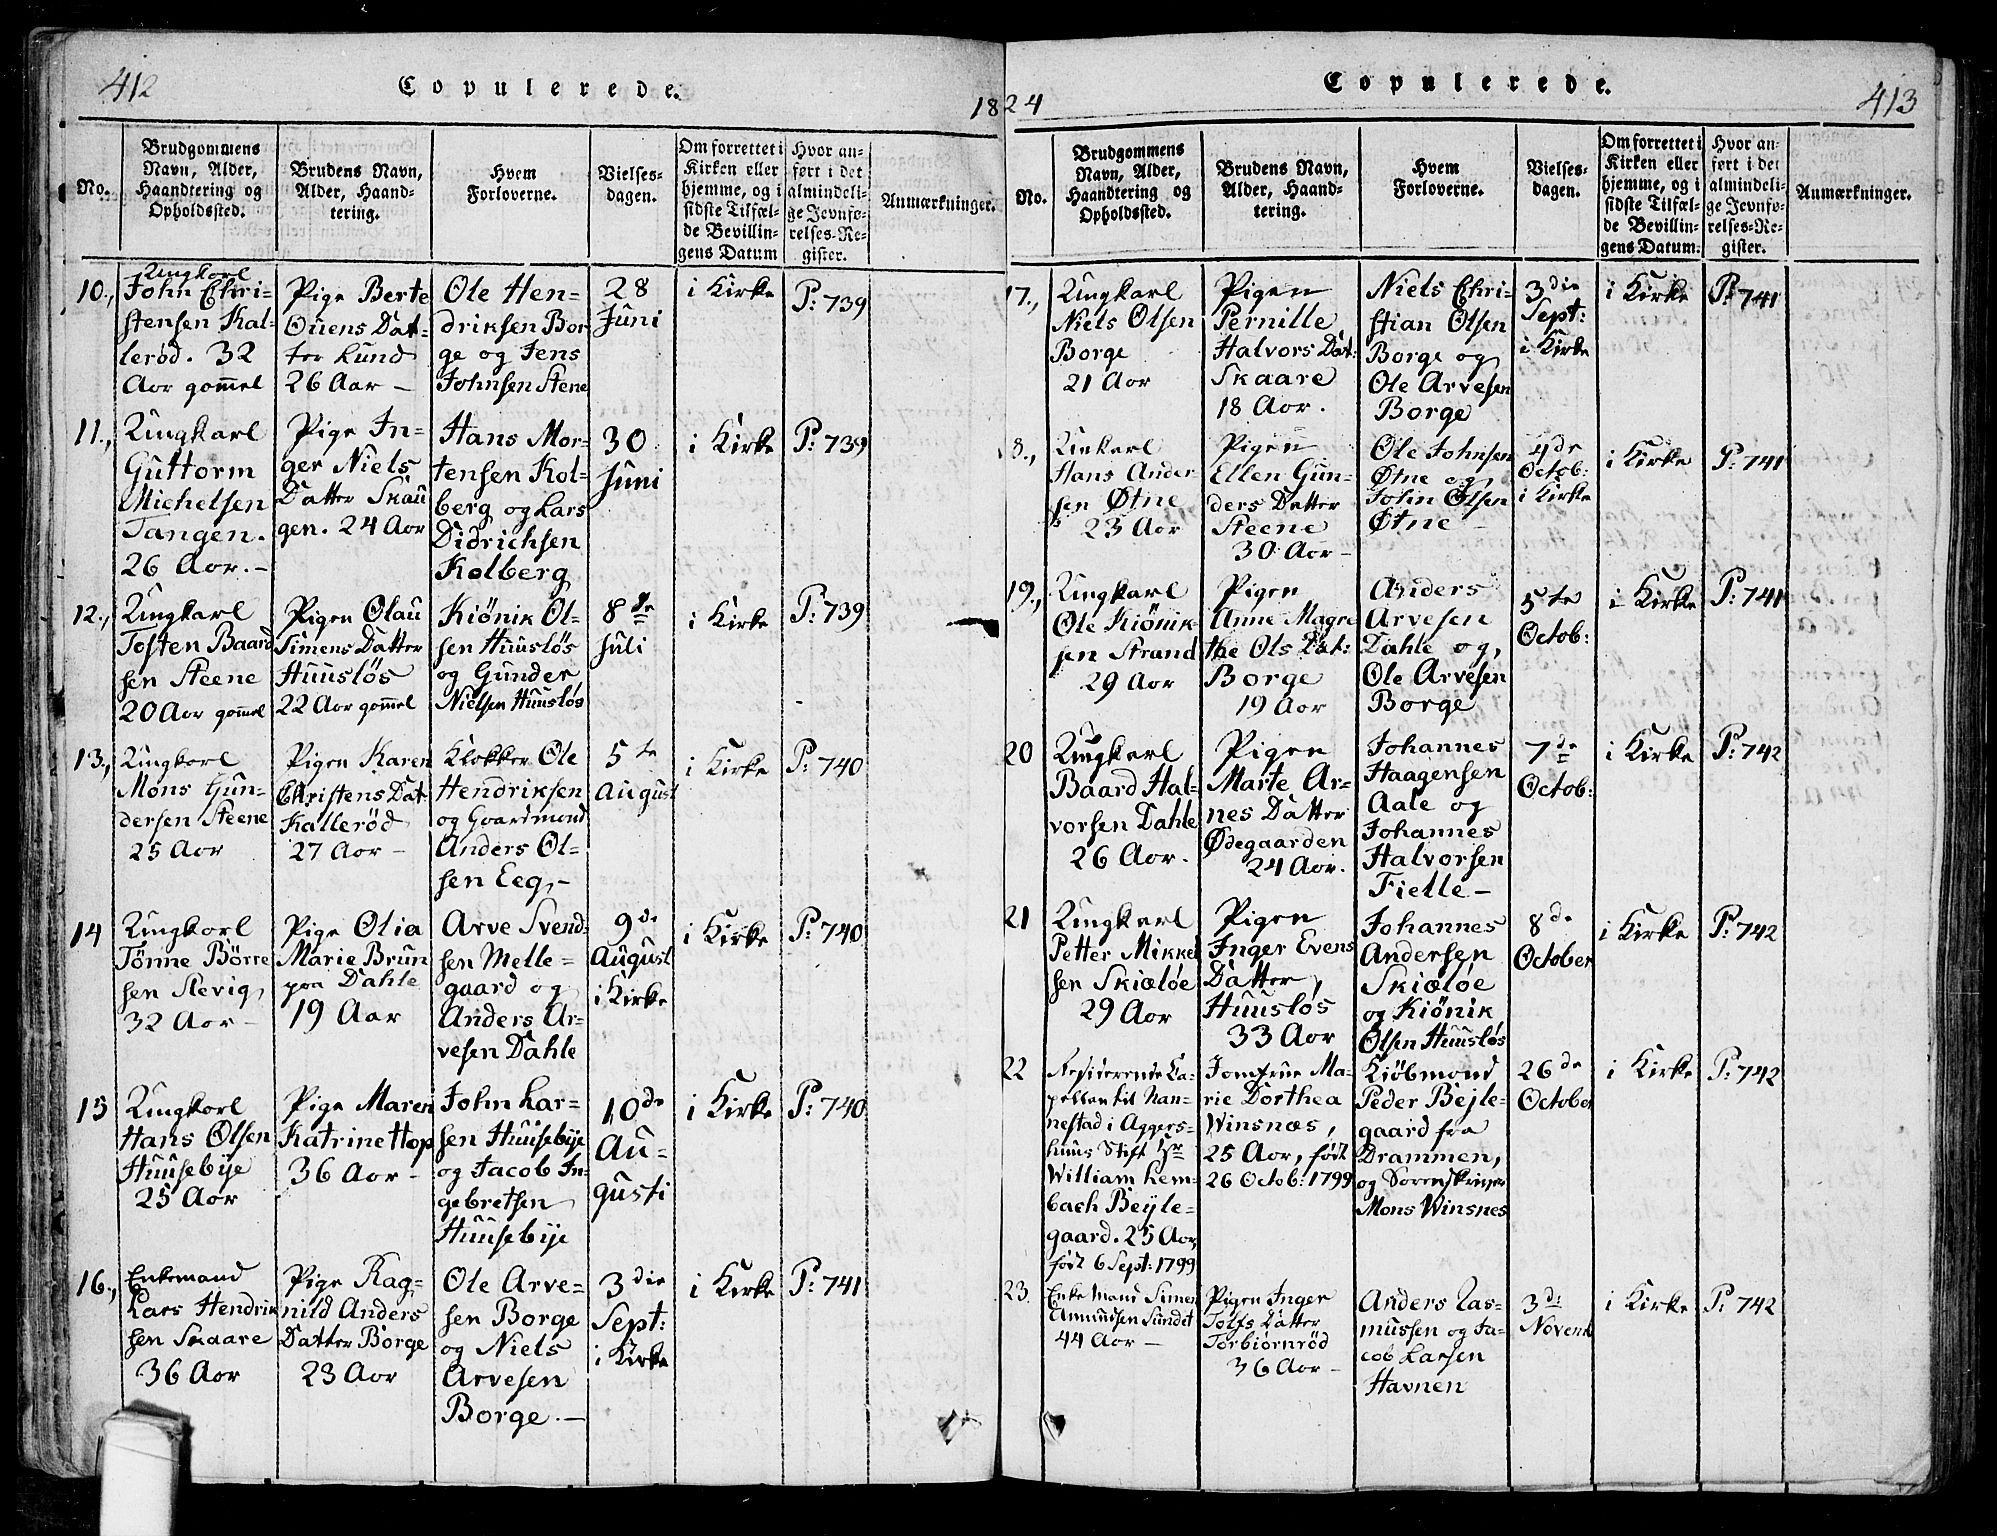 412
Copulerede.
18
No.
Brudgommens
Navn, Alder,
Haandtering og
Opholdssted.
Brudens Navn,
Alder, Haand-
tering.
Hvem
Forloverne.
Vielses-
dagen.
Om forrettet i
Kirken eller
hjemme, og i
sidste Tilfæl-
de Bevillin-
gens Datum
Hvor an-
ført i det
almindeli-
ge Jevnfø-
relses-Re-
gister.
Anmærkninger.
10.,
Ungkarl
John Chri-
stensen Kal-
lerød. 32
Aar gammel
Pige Berte
Ouens Dat-
ter Lund
26 Aar —
Ole Hen-
driksen Bor
ge og Jens
Johnsen Stene
28
Juni
i Kirke
P: 739
11.,
Ungkarl
Guttorm
Michelsen
Tangen.
26 Aar. —
Pige In-
ger Niels
Datter Skau
gen. 24 Aar
Hans Mor-
tensen Kol-
berg og Lars
Didrichsen
Kolberg
30
Juni
i Kirke
P: 739
12.,
Ungkarl
Tosten Baard
sen Steene
20 Aar gammel
Pigen Olau
Simens Datter
Huusløs
22 Aar gammel
Kiönik Ol-
sen Huusløs
og Gunder
Nielsen Huusløs
8de
Juli
i Kirke
P: 739
13.,
Ungkarl
Mons Gun-
dersen Steene
25 Aar
Pigen Karen
Christens Dat
Kallerød
27 Aar —
Klokker Ole
Hendriksen
og Gaardmand
Anders Ol-
sen Eeg, —
5te
August
i Kirke
P: 740
14
Ungkarl
Tönne Börre
sen Slevig,
32 Aar —
Pige Olia
Marie Brun
paa Dahle
19 Aar
Arve Svend
sen Melle-
gaard og
Anders Ar-
vesen Dahle
9de
August
i Kirke
i Kirke
P: 740
15
Ungkarl
Hans Olsen
Huusebye
25 Aar
Pige Maren
Katrine Hop
36 Aar —
John Lar-
sen Huusebye
og Jacob In-
gebretsen
Huusebye
10de
Au-
gusti
i Kirke
P: 740
16.,
Enkemand
Lars Hendrik
sen Skaare
36 Aar
Pige Rag-
nild Anders
Datter Borge
23 Aar
Ole Arve-
sen Borge
og Niels
Arvesen
Borge. —
3die
Sept:
i Kirke
i Kirke
P: 741
24
Copulerede.
413
No.
Brudgommens
Navn, Alder,
Haandtering og
Opholdssted.
Brudens Navn,
Alder, Haand-
tering.
Hvem
Forloverne.
Vielses-
dagen.
Om forrettet i
Kirken eller
hjemme, og i
sidste Tilfæl-
de Bevillin-
gens Datum.
Hvor an-
ført i det
almindeli-
ge Jevnfø-
relses-Re-
gister.
Anmærkninger.
17.,
Ungkarl
Niels Olsen
Borge
21 Aar
Pigen
Pernille
Halvors Dat:
Skaare
18 Aar.
Niels Chri-
stian Olsen
Borge og
Ole Arvesen
Borge
3die
Sept:
i Kirke
i Kirke
P: 741
8.,
Unkarl
Hans Ander
sen Øtne
23 Aar
Pigen
Ellen Gun-
ders Datter
Steene
30 Aar —
Ole Johnsen
Øtne og
John Olsen
Øtne —
4de
Octob:
i Kirke
i Kirke
P: 741
19.,
Ungkarl
Ole Kiönik-
sen Strand
29 Aar
Pigen
Anne Magre
the Ols Dat:
Borge
19 Aar
Anders
Arvesen
Dahle og,
Ole Arvesen
Borge
5te
Octob:
i Kirke
P: 741
20
Ungkarl
Baard Hal-
vorsen Dahle
26 Aar.
Pigen
Marte Ar-
nes Datter
Ødegaarden
24 Aar.
Johannes
Haagensen
Aale og
Johannes
Halvorsen
Fielle —
7de
Octob:
i Kirke
P: 742
21
Ungkarl
Petter Mikkel
sen Skiæløe
29 Aar
Pigen
Inger Evens
Datter,
Huusløs
33 Aar
Johannes
Andersen
Skiæløe
og Kiönik
Olsen Huusløs
8de
October
i Kirke
P: 742
22
Residerende Ca-
pellan til Nan-
nestad i Aggers-
huus Stift Hr
William Lem-
bach Beyle-
gaard. 25 Aar,
født 6 Sept: 1799
Jomfrue Ma-
rie Dorthea
Winsnæs,
25 Aar, født
26 Octob: 1799
Kiöbmand
Peder Bejle-
gaard fra
Drammen,
og Sorenskriver
Mons Winsnes
26de
October
i Kirke
P: 742
23.
Enkemand Simen
Amundsen Sundet
44 Aar —
Pigen Inger
Tolfs Datter
Torbiørnrød
36 Aar —
Anders Ras-
mussen og Ja-
cob Larsen
Havnen
3di
Novemb
i Kirke
P: 742